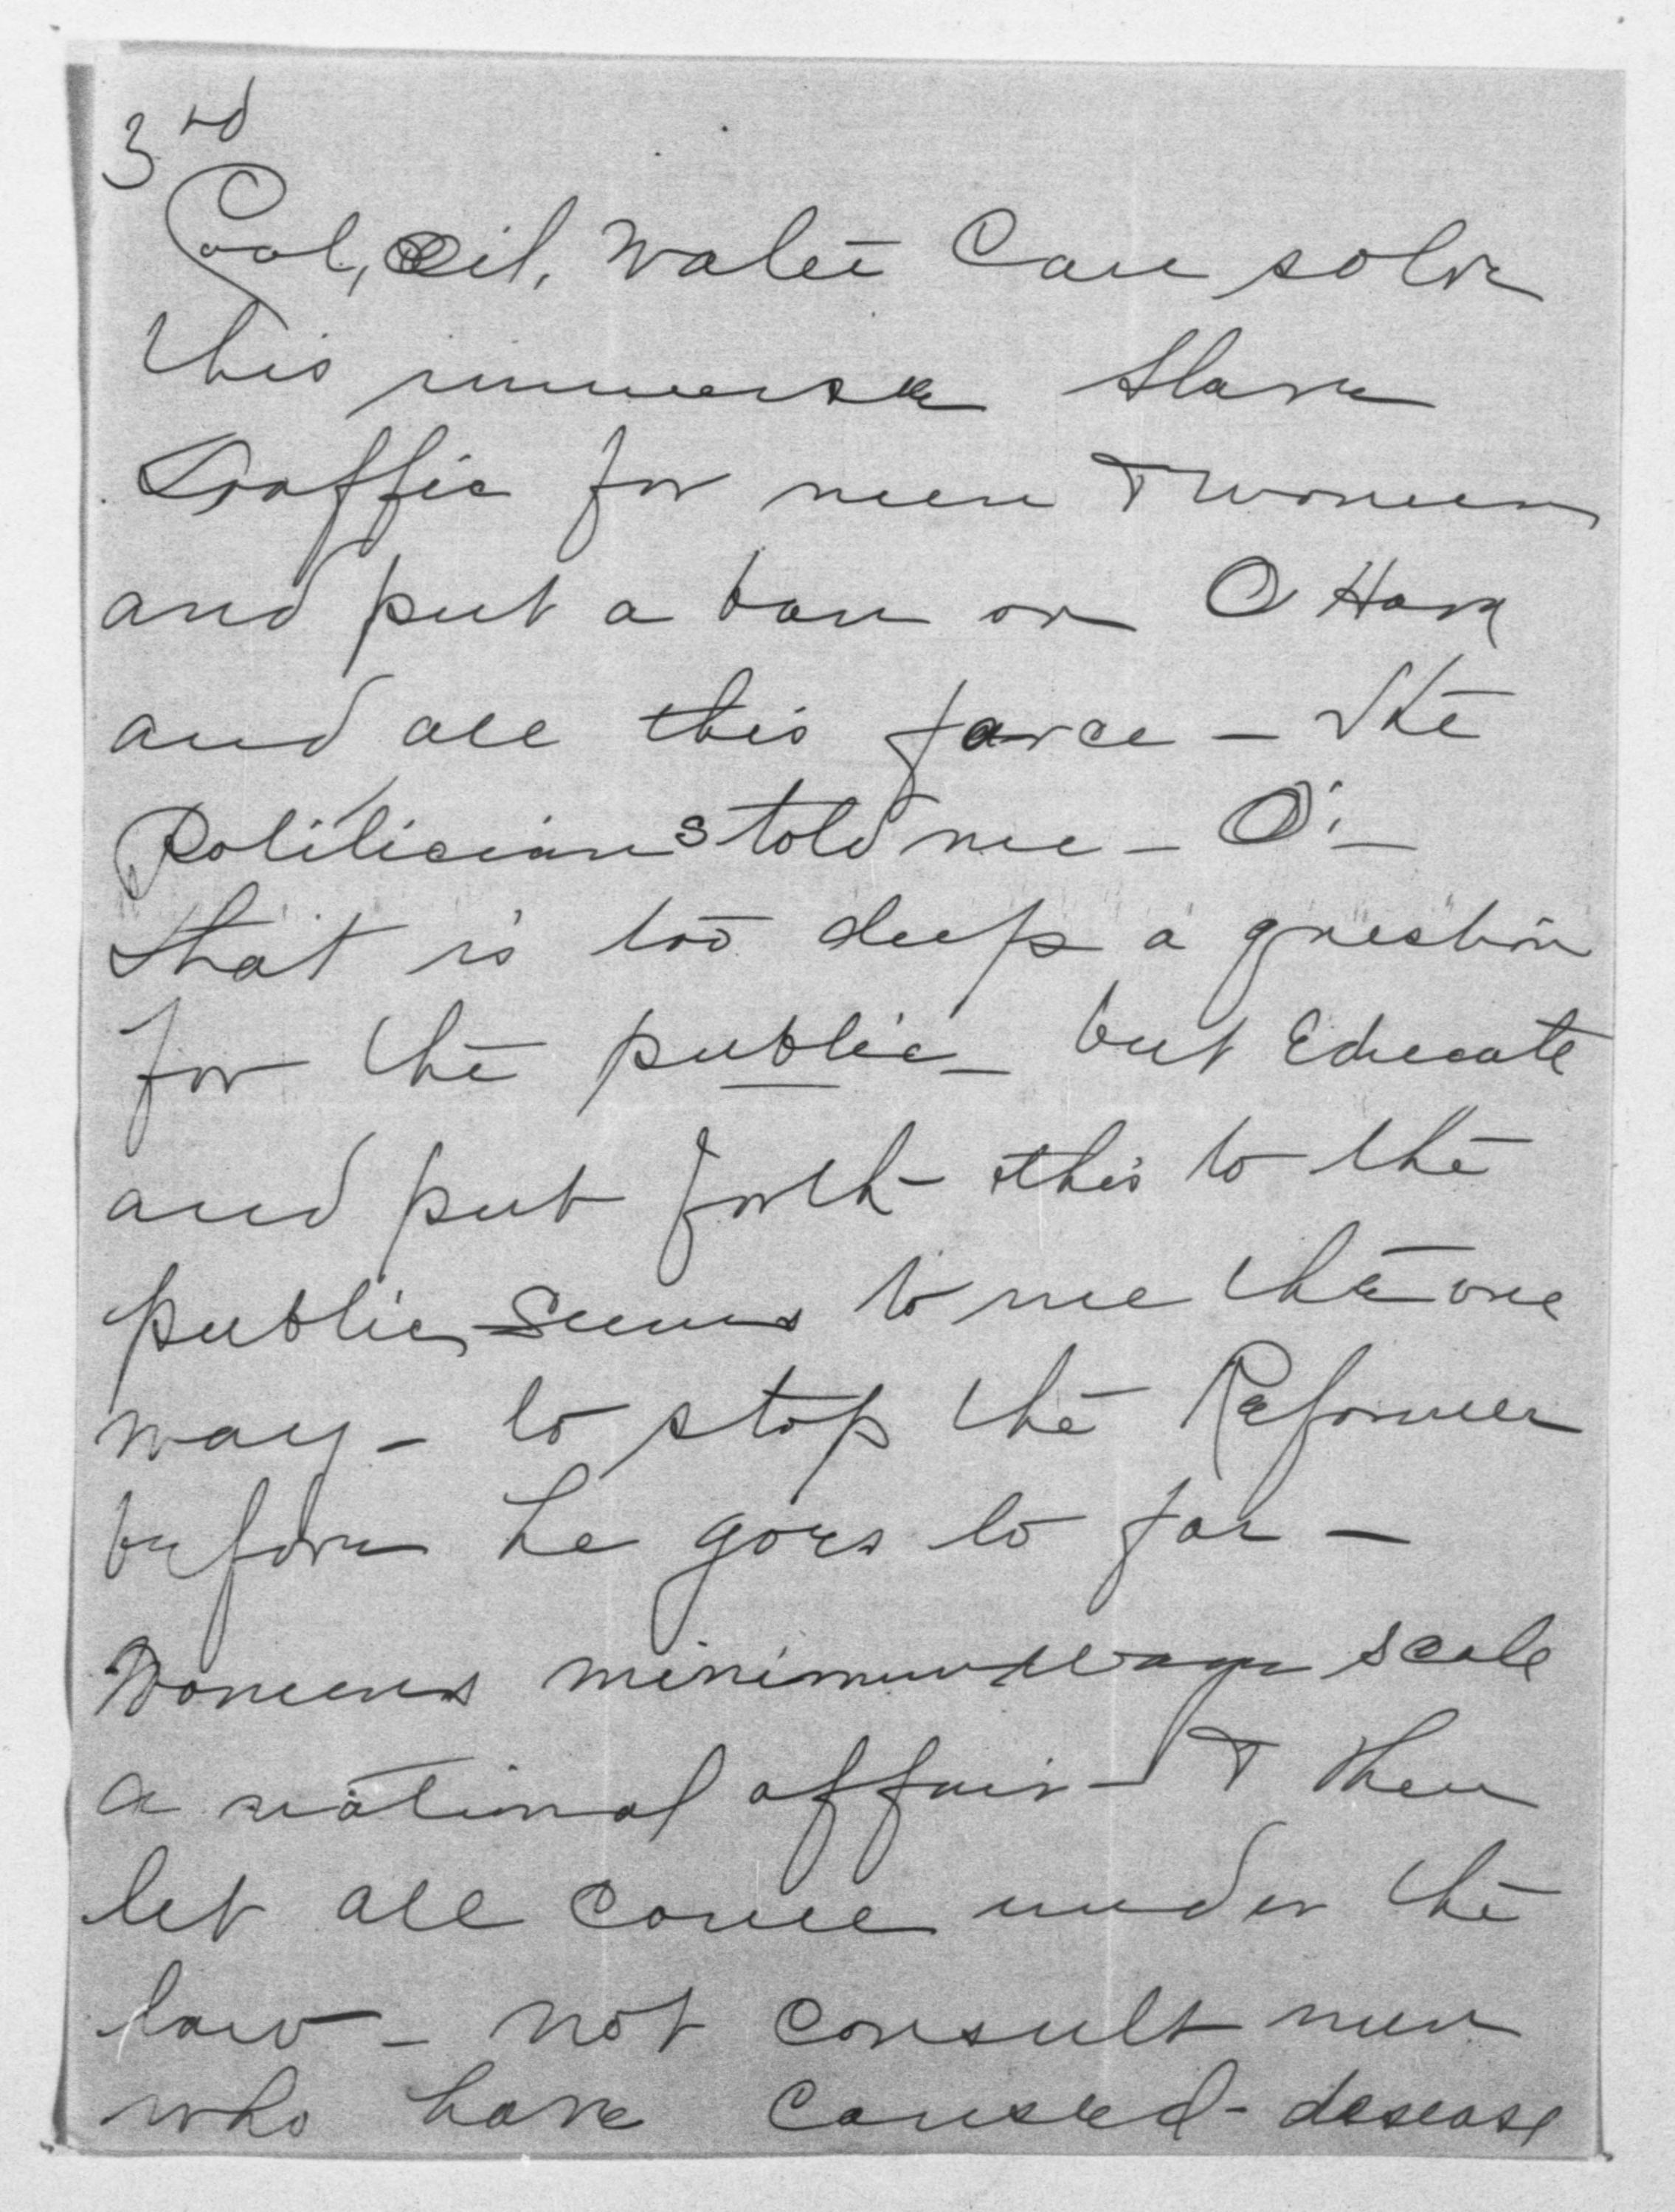 3rd
Coal, Oil, Water Can solve
this immense Slave
Traffic for men & women
and put a ban on O Hara
and all this farce - The
Politicians told me - O! -
that is too deep a question
for the public - but Educate
and put forth - this to the
public seems to me the one
way - to stop the Reformer
before he goes to far -
Womens minimum wage scale
a national affair - & then
let all come under the
law - not consult men
who have caused - desease